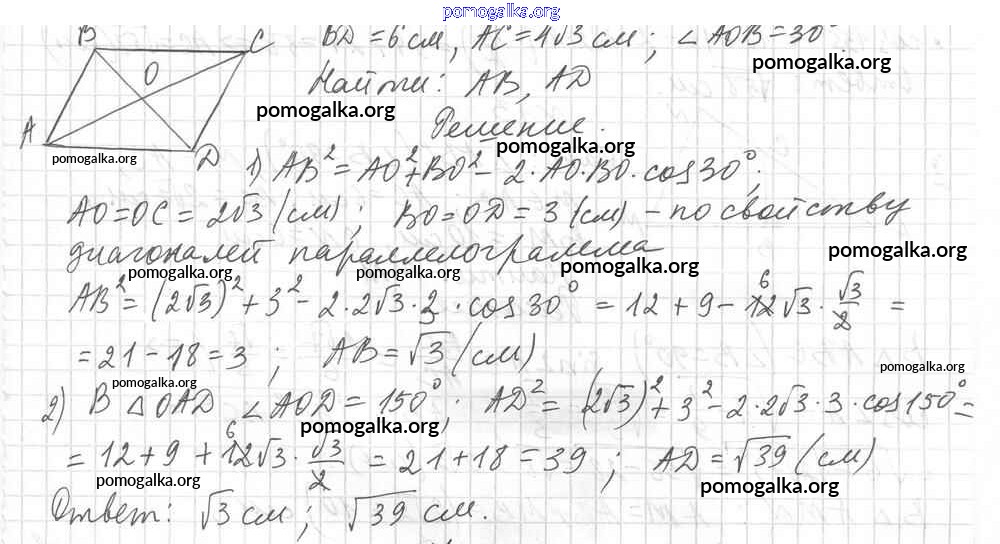 pomogalka.org
B C BD = 6 см, AC = 4√3 см; ∠AOB = 30°
O pomogalka.org
Найти: AB, AD
pomogalka.org
A Решение.
pomogalka.org D pomogalka.org
1) AB² = AO² + BO² - 2·AO·BO·cos30°;
AO = OC = 2√3 (см); BO = OD = 3 (см) - по свойству
диагоналей параллелограмма
pomogalka.org pomogalka.org pomogalka.org pomogalka.org
AB² = (2√3)² + 3² - 2·2√3·3·cos30° = 12 + 9 - 12 6 √3 · √3/2 =
= 21 - 18 = 3; AB = √3 (см)
pomogalka.org pomogalka.org
2) В △OAD ∠AOD = 150°. AD² = (2√3)² + 3² - 2·2√3·3·cos150° =
pomogalka.org
= 12 + 9 + 12 6 √3 · √3/2 = 21 + 18 = 39; AD = √39 (см)
pomogalka.org pomogalka.org
Ответ: √3 см; √39 см.